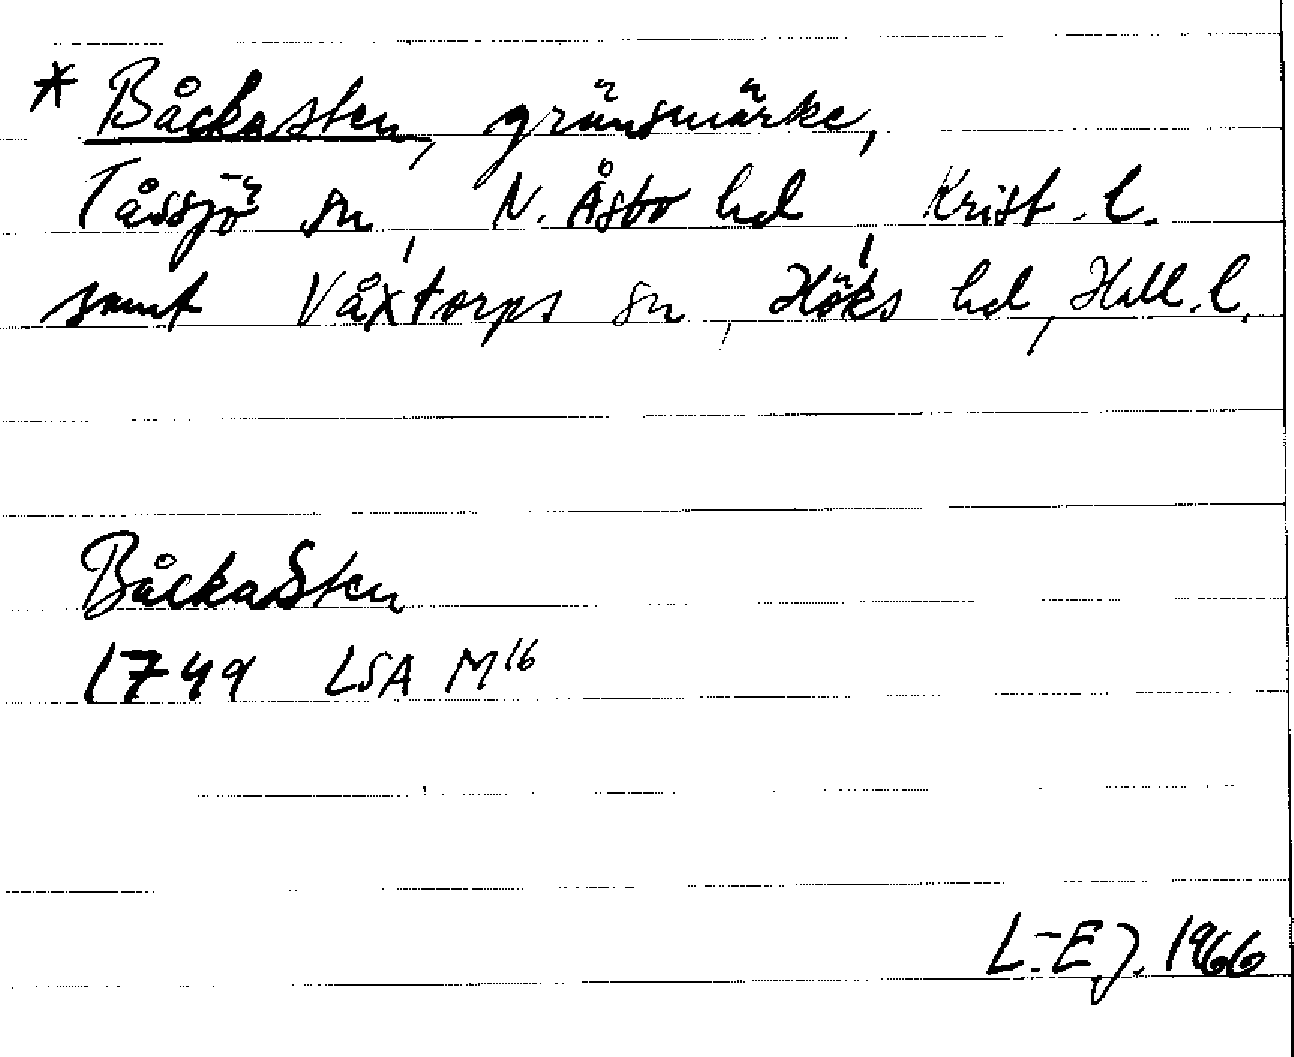 * Båckasten, gränsmärke,
Tåssjö sn, N. Åsbo hd, Krist. l.
samt Våxtorps sn, Höks hd, Hall. l.
BåckaSten
1749 LSA M16
L.-E.J. 1966